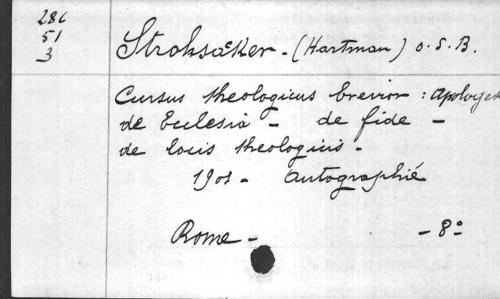 286
51
3
Strohsäker - (Hartman) O. S. B.
Cursus theologicus brevior : Apologet
de Ecclesia - de fide -
de locis theologicis -
1901 - Autographié
Rome - - 8º